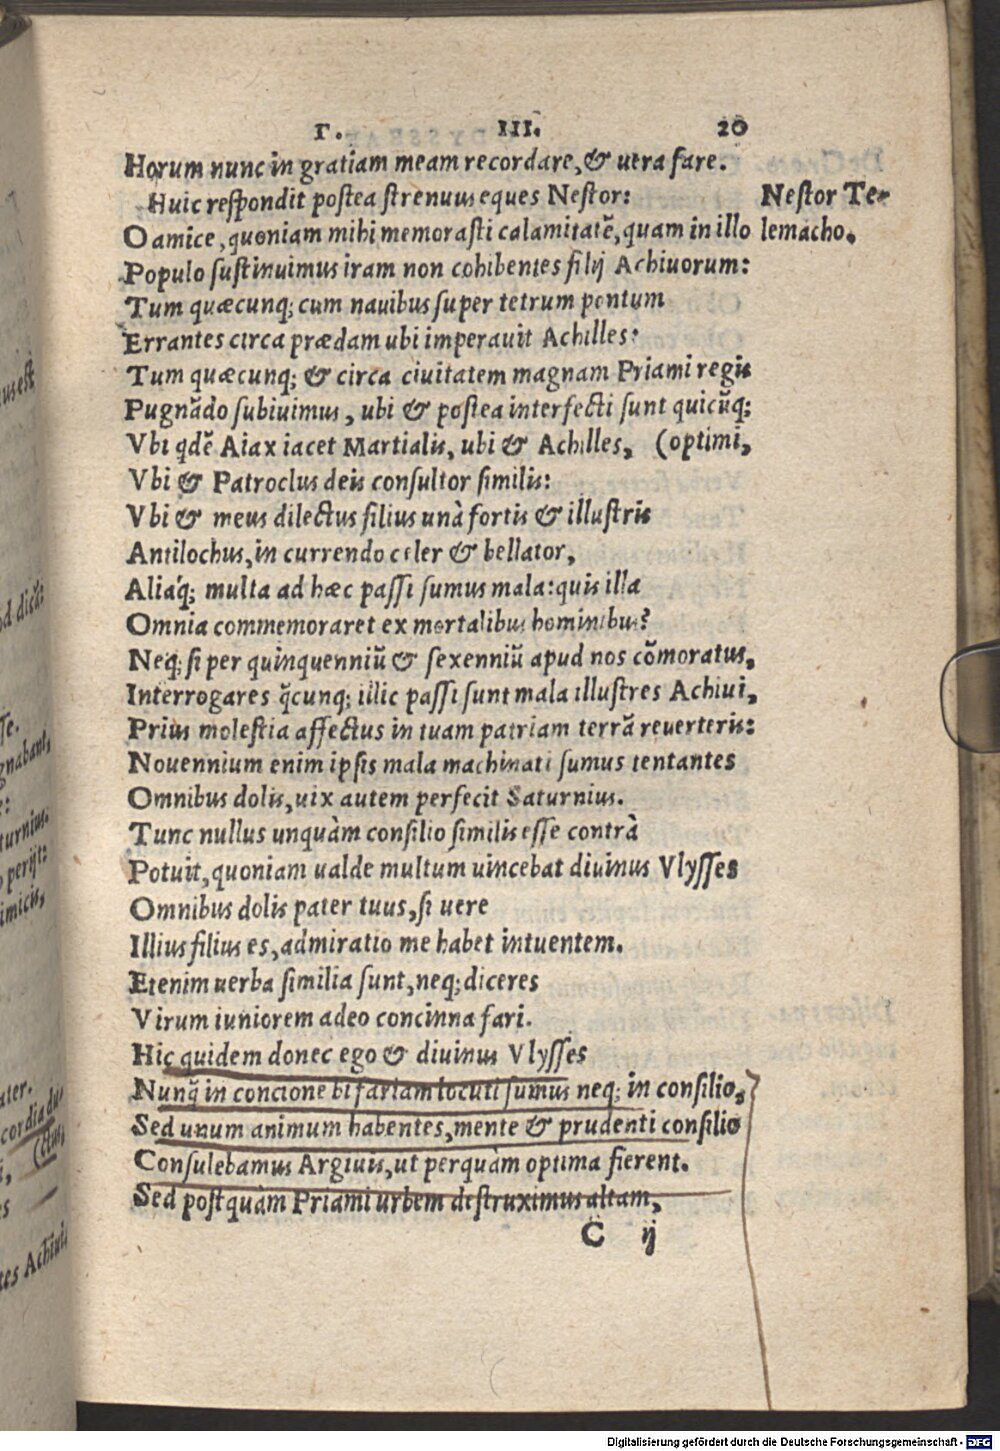 Γ. III. 20
Horum nunc in gratiam meam recordare, & uera fare.
Huic respondit postea strenuus eques Nestor: Nestor Te-
O amice, quoniam mihi memorasti calamitatẽ, quam in illo lemacho.
Populo sustinuimus iram non cohibentes filij Achiuorum:
Tum quæcunq; cum nauibus super tetrum pontum
Errantes circa prædam ubi imperauit Achilles:
Tum quæcunq; & circa ciuitatem magnam Priami regis
Pugnãdo subiuimus, ubi & postea interfecti sunt quicũq;
Vbi qdẽ Aiax iacet Martialis, ubi & Achilles, (optimi,
Vbi & Patroclus deis consultor similis:
Vbi & meus dilectus filius unà fortis & illustris
Antilochus, in currendo celer & bellator,
Aliaq́; multa ad hæc passi sumus mala: quis illa
Omnia commemoraret ex mortalibus hominibus?
Neq; si per quinquenniũ & sexenniũ apud nos cõmoratus,
Interrogares q̃cunq; illic passi sunt mala illustres Achiui,
Prius molestia affectus in tuam patriam terrã reuerteris:
Nouennium enim ipsis mala machinati sumus tentantes
Omnibus dolis, uix autem perfecit Saturnius.
Tunc nullus unquàm consilio similis esse contrà
Potuit, quoniam ualde multum uincebat diuinus Vlysses
Omnibus dolis pater tuus, si uere
Illius filius es, admiratio me habet intuentem.
Etenim uerba similia sunt, neq; diceres
Virum iuniorem adeo concinna fari.
Hic quidem donec ego & diuinus Vlysses
Nunq̃ in concione bifariam locuti sumus neq; in consilio,
Sed unum animum habentes, mente & prudenti consilio
Consulebamus Argiuis, ut perquàm optima fierent.
Sed postquàm Priami urbem destruximus altam,
C ij
Digitalisierung gefördert durch die Deutsche Forschungsgemeinschaft - DFG